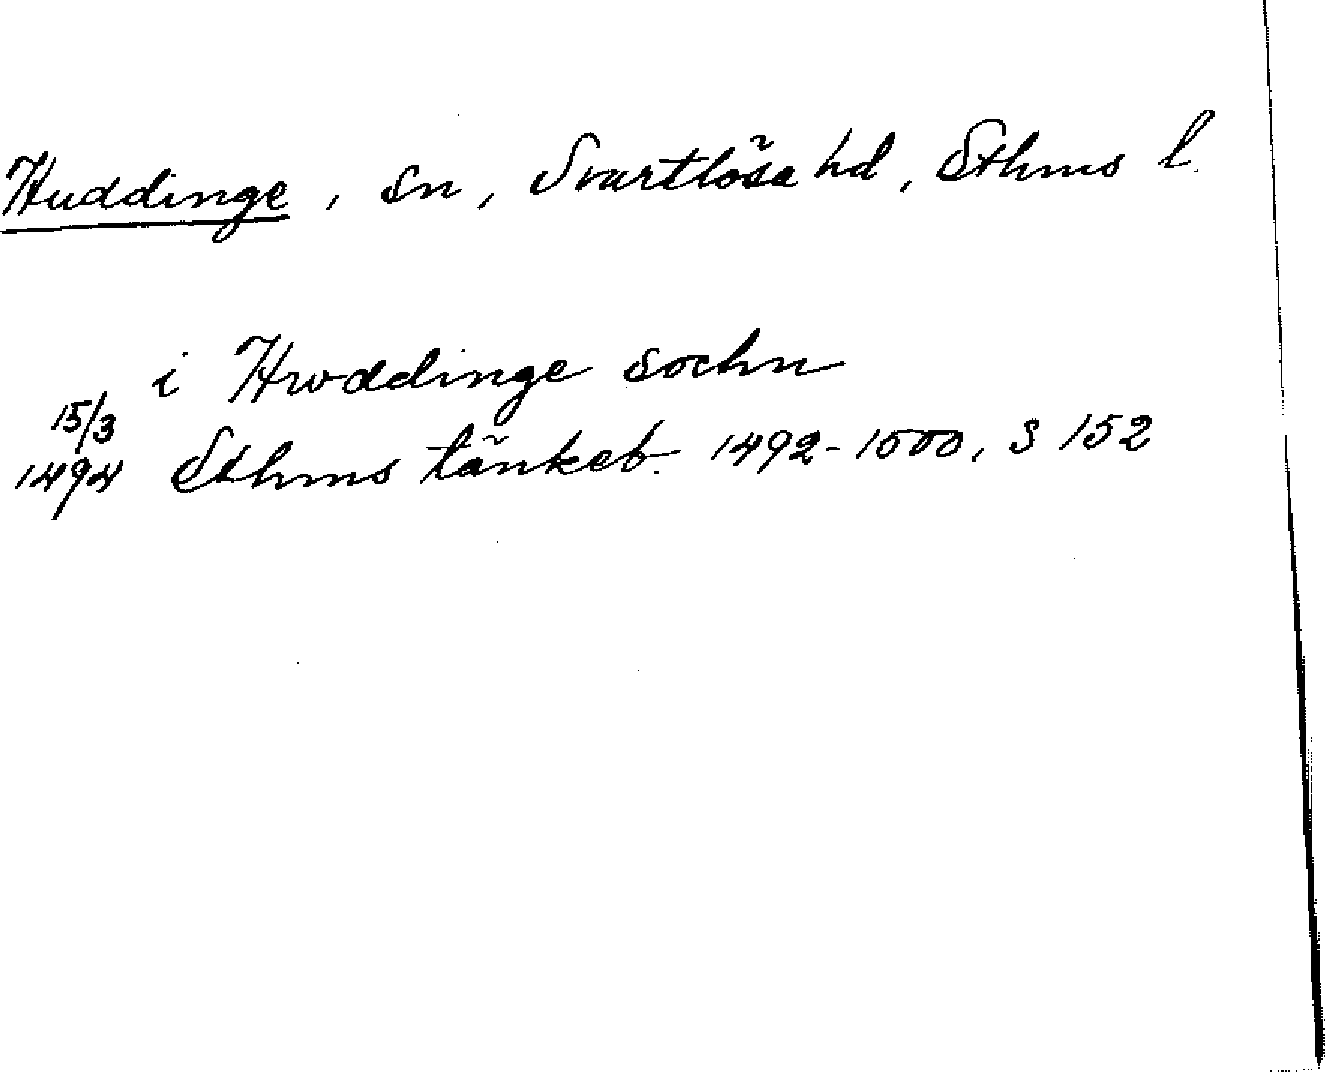 Huddinge, sn, Svartlösa hd, Sthms l.
i Hwddinge sochn
15/3
1494 Sthms tänkeb. 1492-1500, s 152